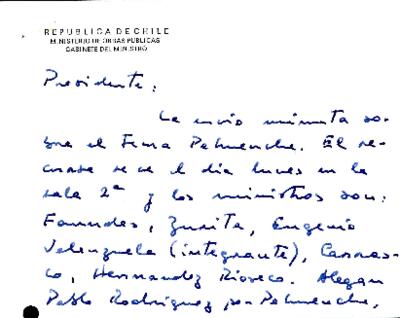 REPUBLICA DE CHILE
MINISTERIO DE OBRAS PUBLICAS
GABINETE DEL MINISTRO
Presidente:
Le envío minuta so-
bre el Tema Pehuenche. El re-
curso se ve el día lunes en la
sala 2ª y los ministros son:
Faundes, Zurita, Eugenio
Valenzuela (integrante), Carras-
co, Hernandez Rioseco. Alegan
Pablo Rodríguez por Pehuenche,